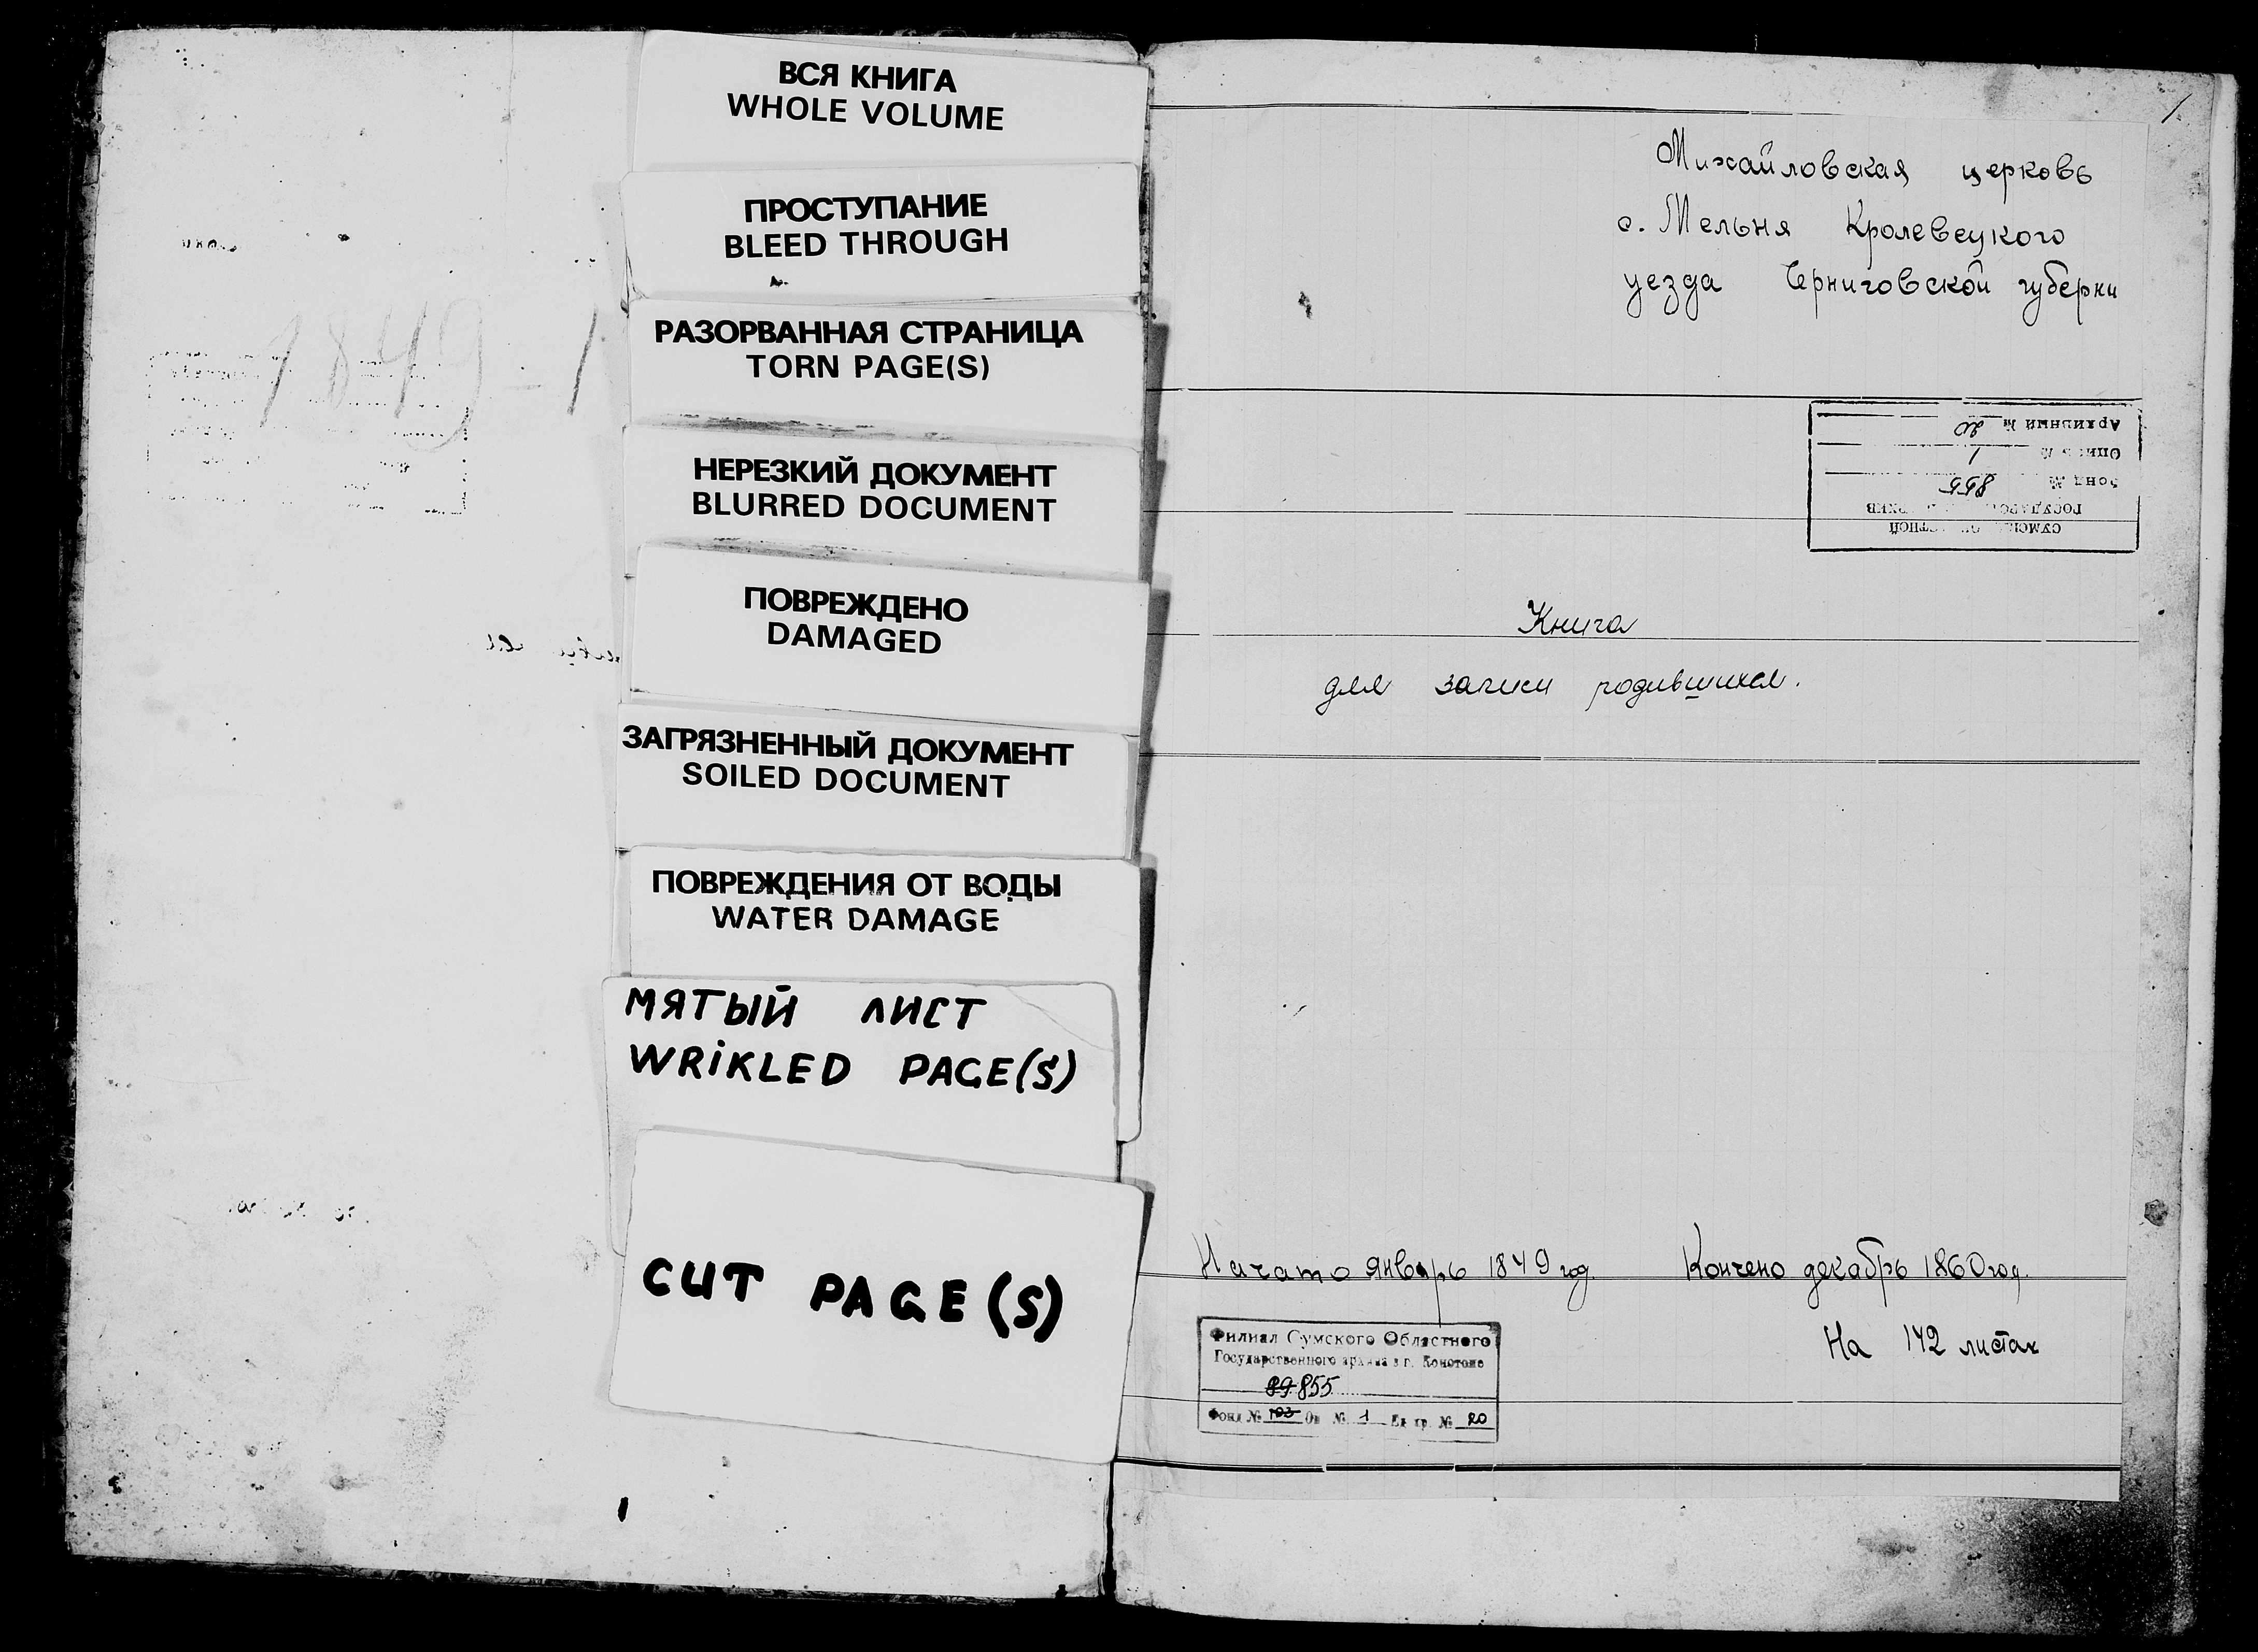 1849
ВСЯ КНИГА
WHOLE VOLUME
ПРОСТУПАНИЕ
BLEED THROUGH
РАЗОРВАННАЯ СТРАНИЦА
TORN PAGE(S)
НЕРЕЗКИЙ ДОКУМЕНТ
BLURRED DOCUMENT
ПОВРЕЖДЕНО
DAMAGED
ЗАГРЯЗНЕННЫЙ ДОКУМЕНТ
SOILED DOCUMENT
ПОВРЕЖДЕНИЯ ОТ ВОДЫ
WATER DAMAGE
МЯТЫЙ ЛИСТ
WRiKLED PAGE(S)
CUT PAGE(S)
1
Михайловская церковь
с. Мельня Кролевецкого
уезда Черниговской губерни
СУМСКОЙ ОБЛАСТНОЙ
ГОСУДАРСТВ АРХИВ
Фонд № 855
Опись № 1
Архивный № 20
Книга
для записи родившихся.
Начато январь 1849 год. Кончено декабрь 1860 год.
На 142 листах
Филиал Сумского Областного
Государственного архива в г. Конотопе
89 855
Фонд № 103 Оп № 1 Ед. хр. № 20